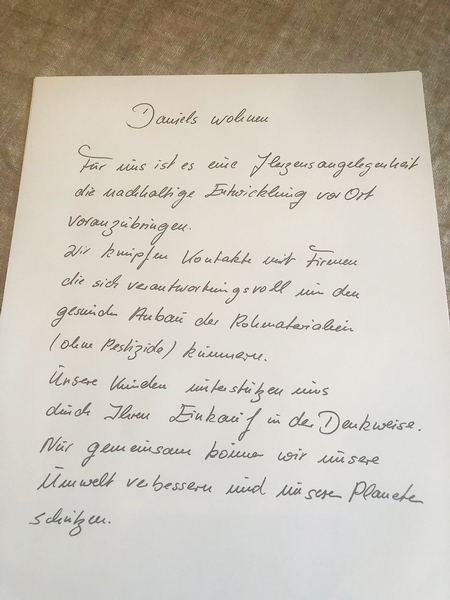 Daniels wohnen
Für uns ist es eine Herzensangelegenheit
die nachhaltige Entwicklung vor Ort
voranzubringen.
Wir knüpfen Kontakte mit Firmen
die sich verantwortungsvoll um den
gesunden Anbau der Rohmaterialien
(ohne Pestizide) kümmern.
Unsere Kunden unterstützen uns
durch Ihren Einkauf in der Denkweise.
Nur gemeinsam können wir unsere
Umwelt verbessern und unseren Planeten
schützen.